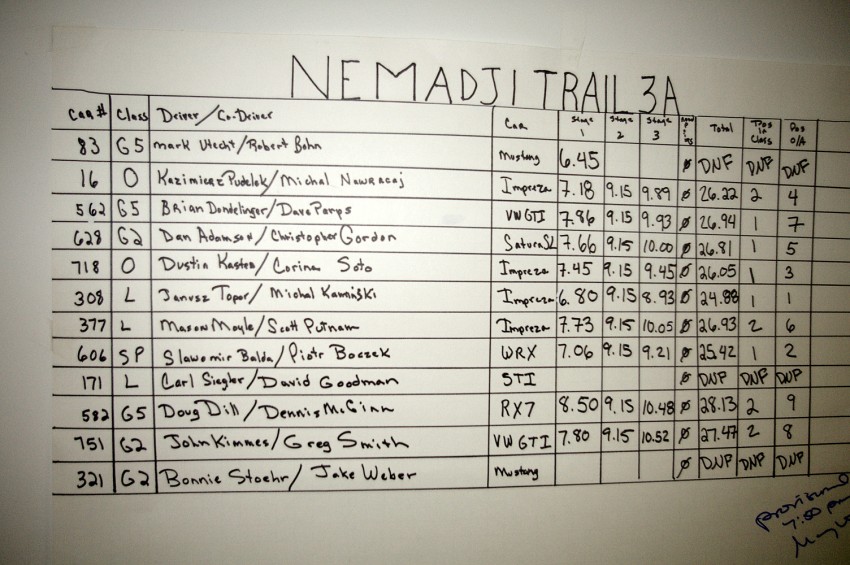 NEMADJI TRAIL 3A
Car # Class Driver/Co-Driver Car Stage 1 Stage 2 Stage 3 Total Pos in Class Pos O/A
83 G5 Mark Utecht/Robert Bohn Mustang 6.45 Ø DNF DNF DNF
16 O Kazimierz Pudelek/Michal Nawracaj Impreza 7.18 9.15 9.89 Ø 26.22 2 4
562 G5 Brian Dondelinger/Dave Parps VW GTI 7.86 9.15 9.93 Ø 26.94 1 7
628 G2 Dan Adamson/Christopher Gordon Saturn SL 7.66 9.15 10.00 Ø 26.81 1 5
718 O Dustin Kasten/Corina Soto Impreza 7.45 9.15 9.45 Ø 26.05 1 3
308 L Janusz Topor/Michal Kaminski Impreza 6.80 9.15 8.93 Ø 24.88 1 1
377 L Mason Moyle/Scott Putnam Impreza 7.73 9.15 10.05 Ø 26.93 2 6
606 SP Slawomir Balda/Piotr Boczek WRX 7.06 9.15 9.21 Ø 25.42 1 2
171 L Carl Siegler/David Goodman STI Ø DNF DNF DNF
582 G5 Doug Dill/Dennis McGinn RX7 8.50 9.15 10.48 Ø 28.13 2 9
751 G2 John Kimmes/Greg Smith VW GTI 7.80 9.15 10.52 Ø 27.47 2 8
321 G2 Bonnie Stoehr/Jake Weber Mustang Ø DNF DNF DNF
provisional
7:00 pm